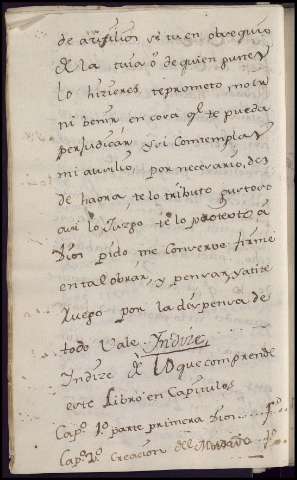 de auxilios se tu en obsequio
de la tuia o de quien
lo hizieres, te prometo, no ir
ni benir en cosa q.e te pueda
perjudicar y si comtemplas
mi auxilio, por necesario, des
de haora te lo tributo gustoso
asi lo Juzgo te lo protexto a
Dios pido me conserve firme
en tal obrar, y pensar, y a ti te
Ruego por la dispensa de
todo Vale Indize
Indize de lo que comprende
este Libro en Capitulos
Cap.o 1.o parte primera Dios
Cap.o 2.o Creacion del Mundo